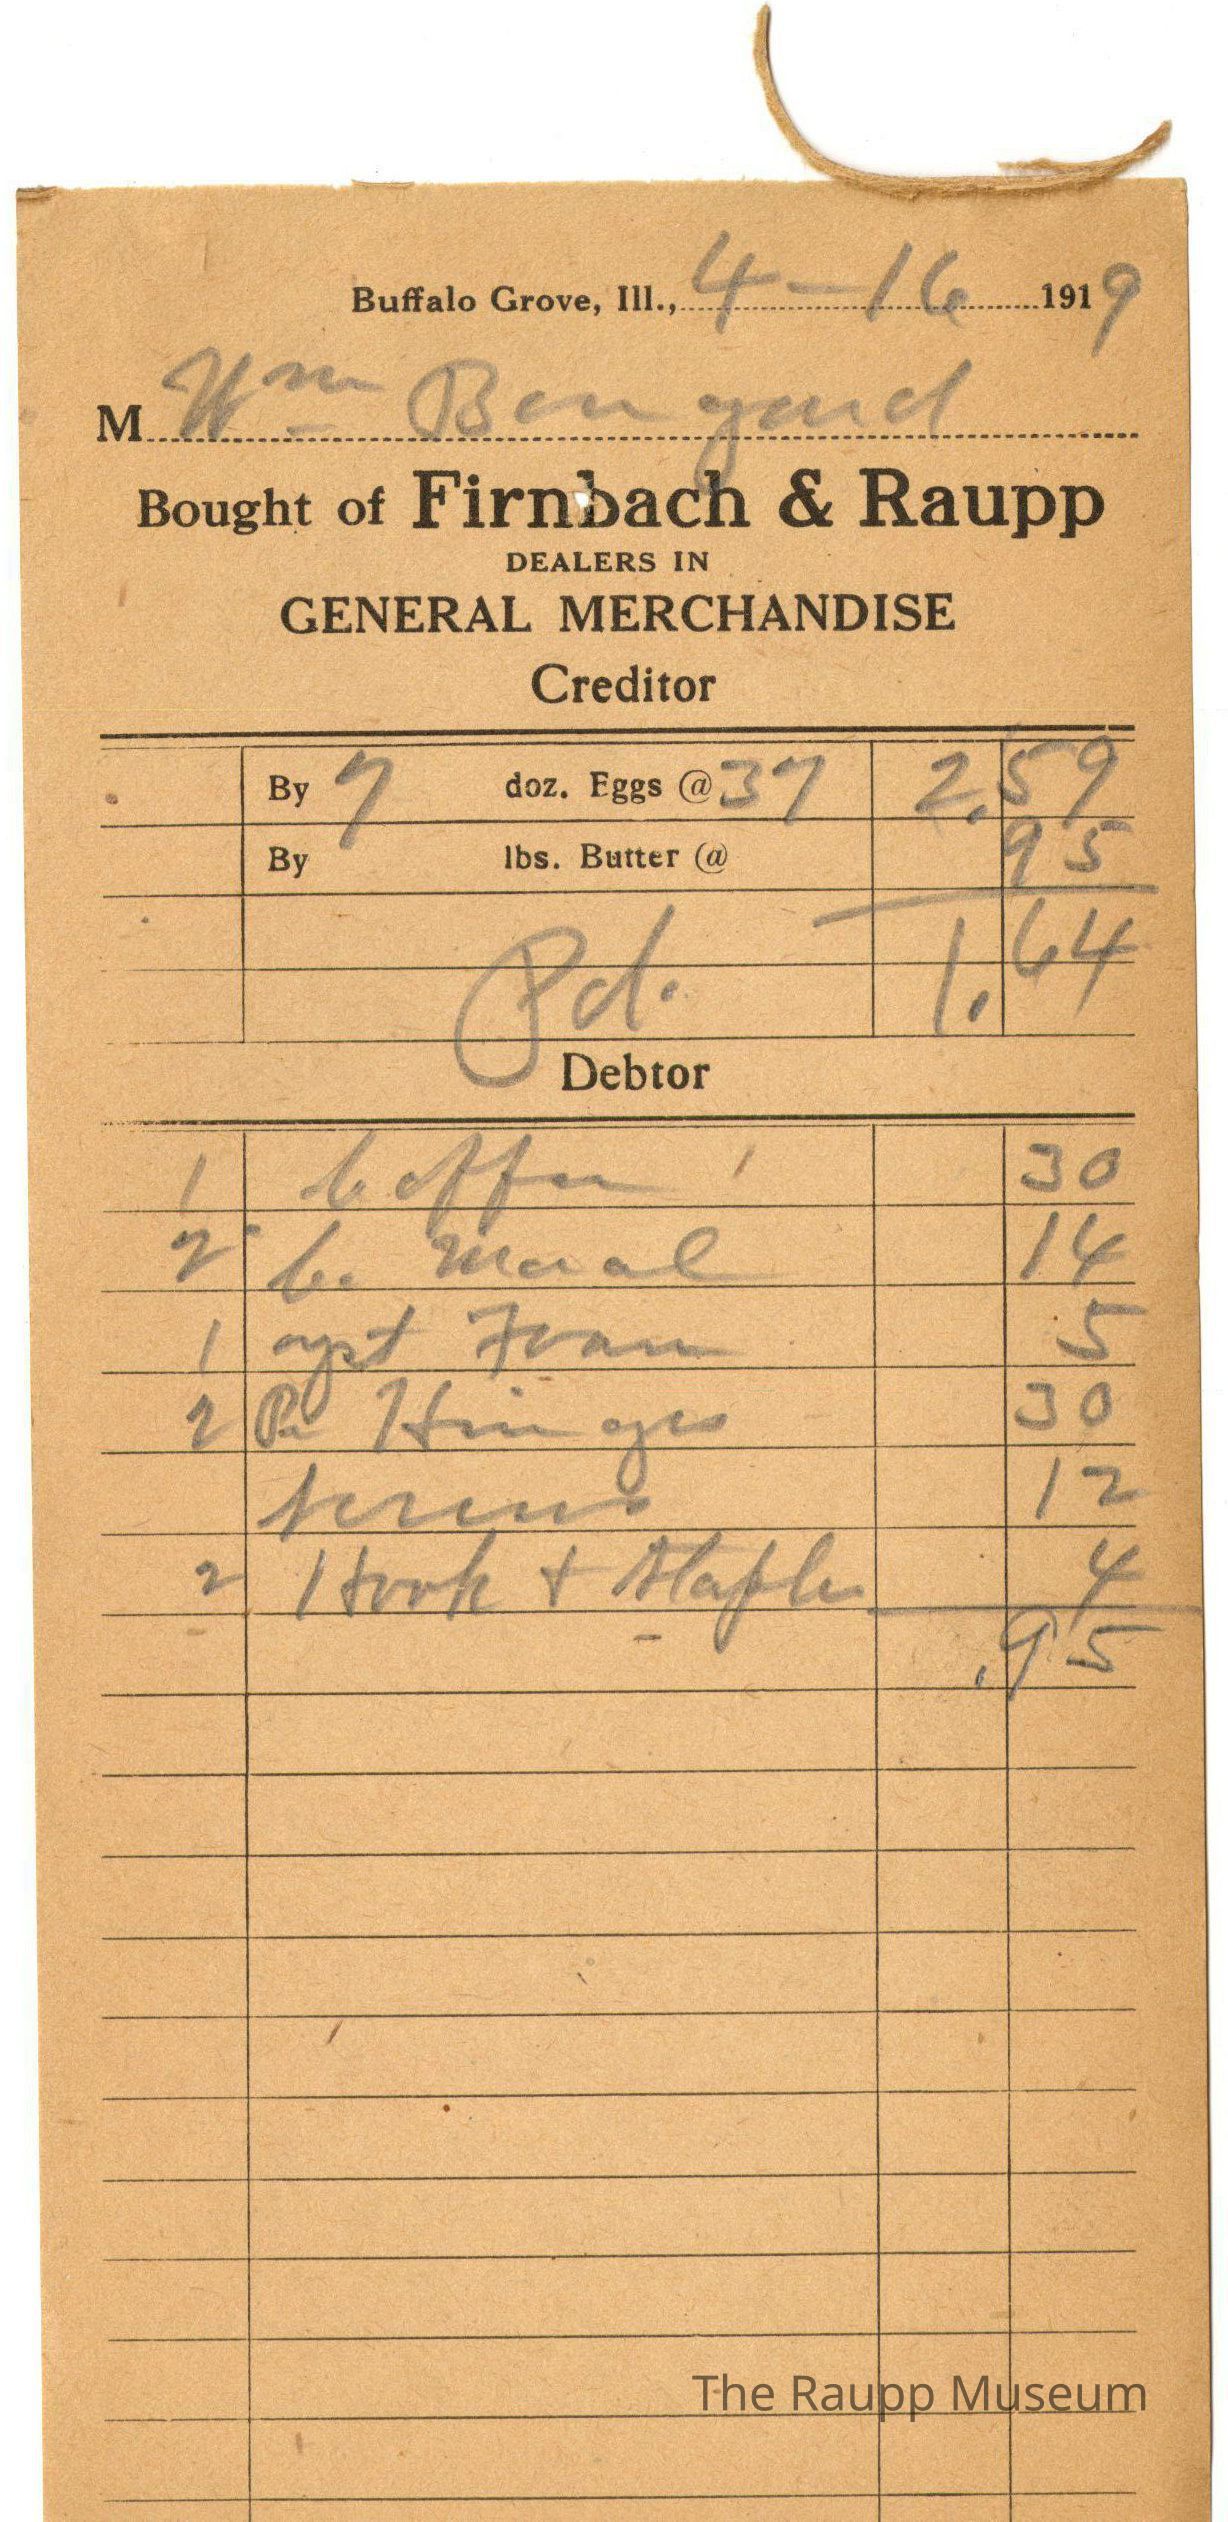 Buffalo Grove, Ill., 4-16 1919
M Wm Bongard
Bought of Firnbach & Raupp
DEALERS IN
GENERAL MERCHANDISE
Creditor
By 7 doz. Eggs @ 37 2.59
By lbs. Butter @ 95
Pd. 1.64
Debtor
1 Coffee 30
2 C. Meal 14
1 Foam 5
2 Pr Hinges 30
Screws 12
2 Hook + Staples 4
.95
The Raupp Museum